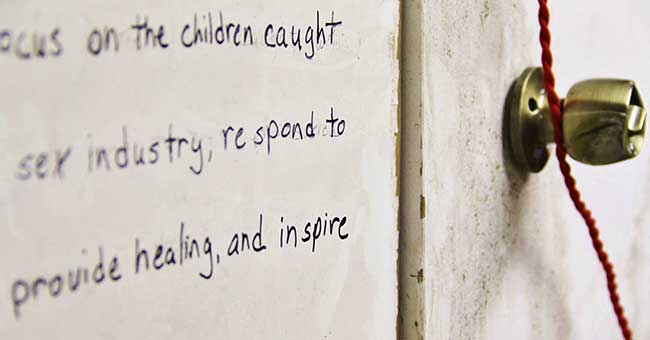 ocus on the children caught
sex industry, respond to
provide healing, and inspire